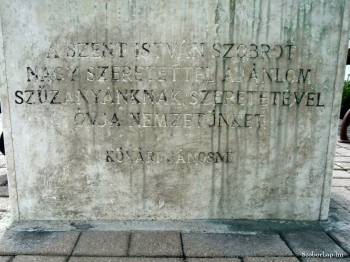 A SZENT ISTVÁN SZOBROT
NAGY SZERETETTEL AJÁNLOM
SZŰZANYÁNKNAK, SZERETETÉVEL
ÓVJA NEMZETÜNKET
KŐVÁRI JÁNOSNÉ
SzoborLap.hu